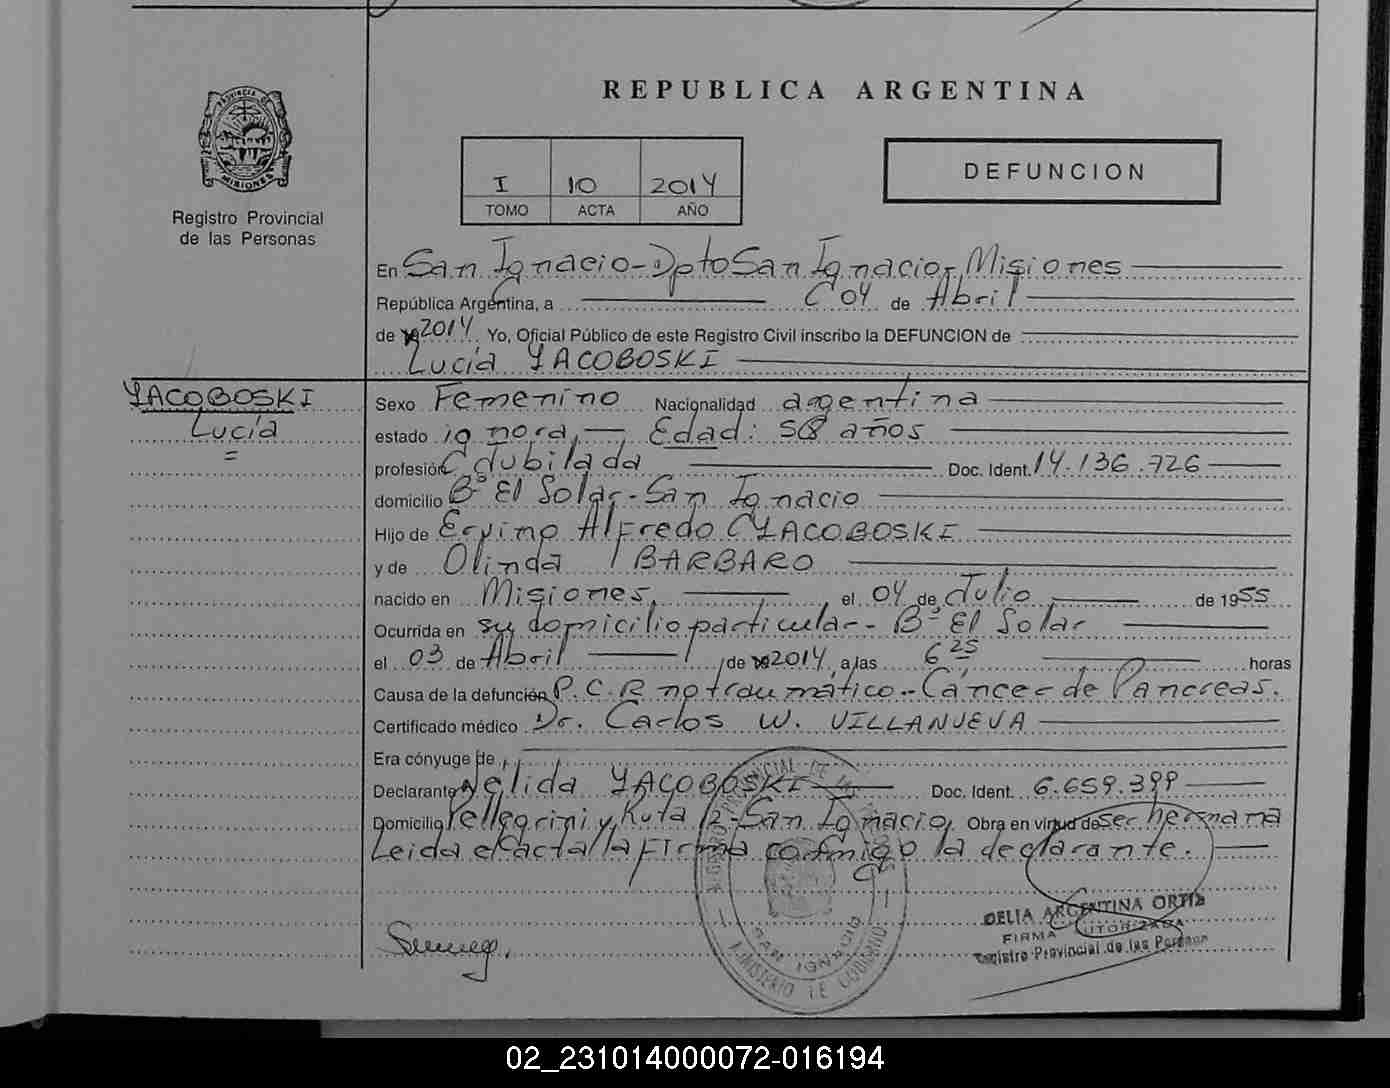 REPUBLICA ARGENTINA
PROVINCIA DE
MISIONES
Registro Provincial
de las Personas
I 10 2014
TOMO ACTA AÑO
DEFUNCION
En San Ignacio - Dpto San Ignacio - Misiones
República Argentina, a 04 de Abril
de 2014 Yo, Oficial Público de este Registro Civil inscribo la DEFUNCION de
Lucía YACOBOSKI
YACOBOSKI
Lucía
Sexo Femenino Nacionalidad argentina
estado ignora, Edad: 58 años
profesión Jubilada Doc. Ident. 14.136.726
domicilio Bº El Solar - San Ignacio
Hijo de Ervino Alfredo YACOBOSKI
y de Olinda BARBARO
nacido en Misiones, el 04 de Julio de 1955
Ocurrida en su domicilio particular - Bº El Solar
el 03 de Abril de 2014, a las 6 25 horas
Causa de la defunción P.C.R no traumático - Cáncer de Pancreas.
Certificado médico Dr. Carlos W. VILLANUEVA
Era cónyuge de
Declarante Nélida YACOBOSKI Doc. Ident. 6.659.399
Domicilio Pellegrini y Ruta 12 - San Ignacio, Obra en virtud de ser hermana
Leida el acta la firma conmigo la declarante.
SAN IGNACIO
MINISTERIO DE GOBIERNO
DELIA ARGENTINA ORTIZ
FIRMA AUTORIZADA
Registro Provincial de las Personas
02_231014000072-016194